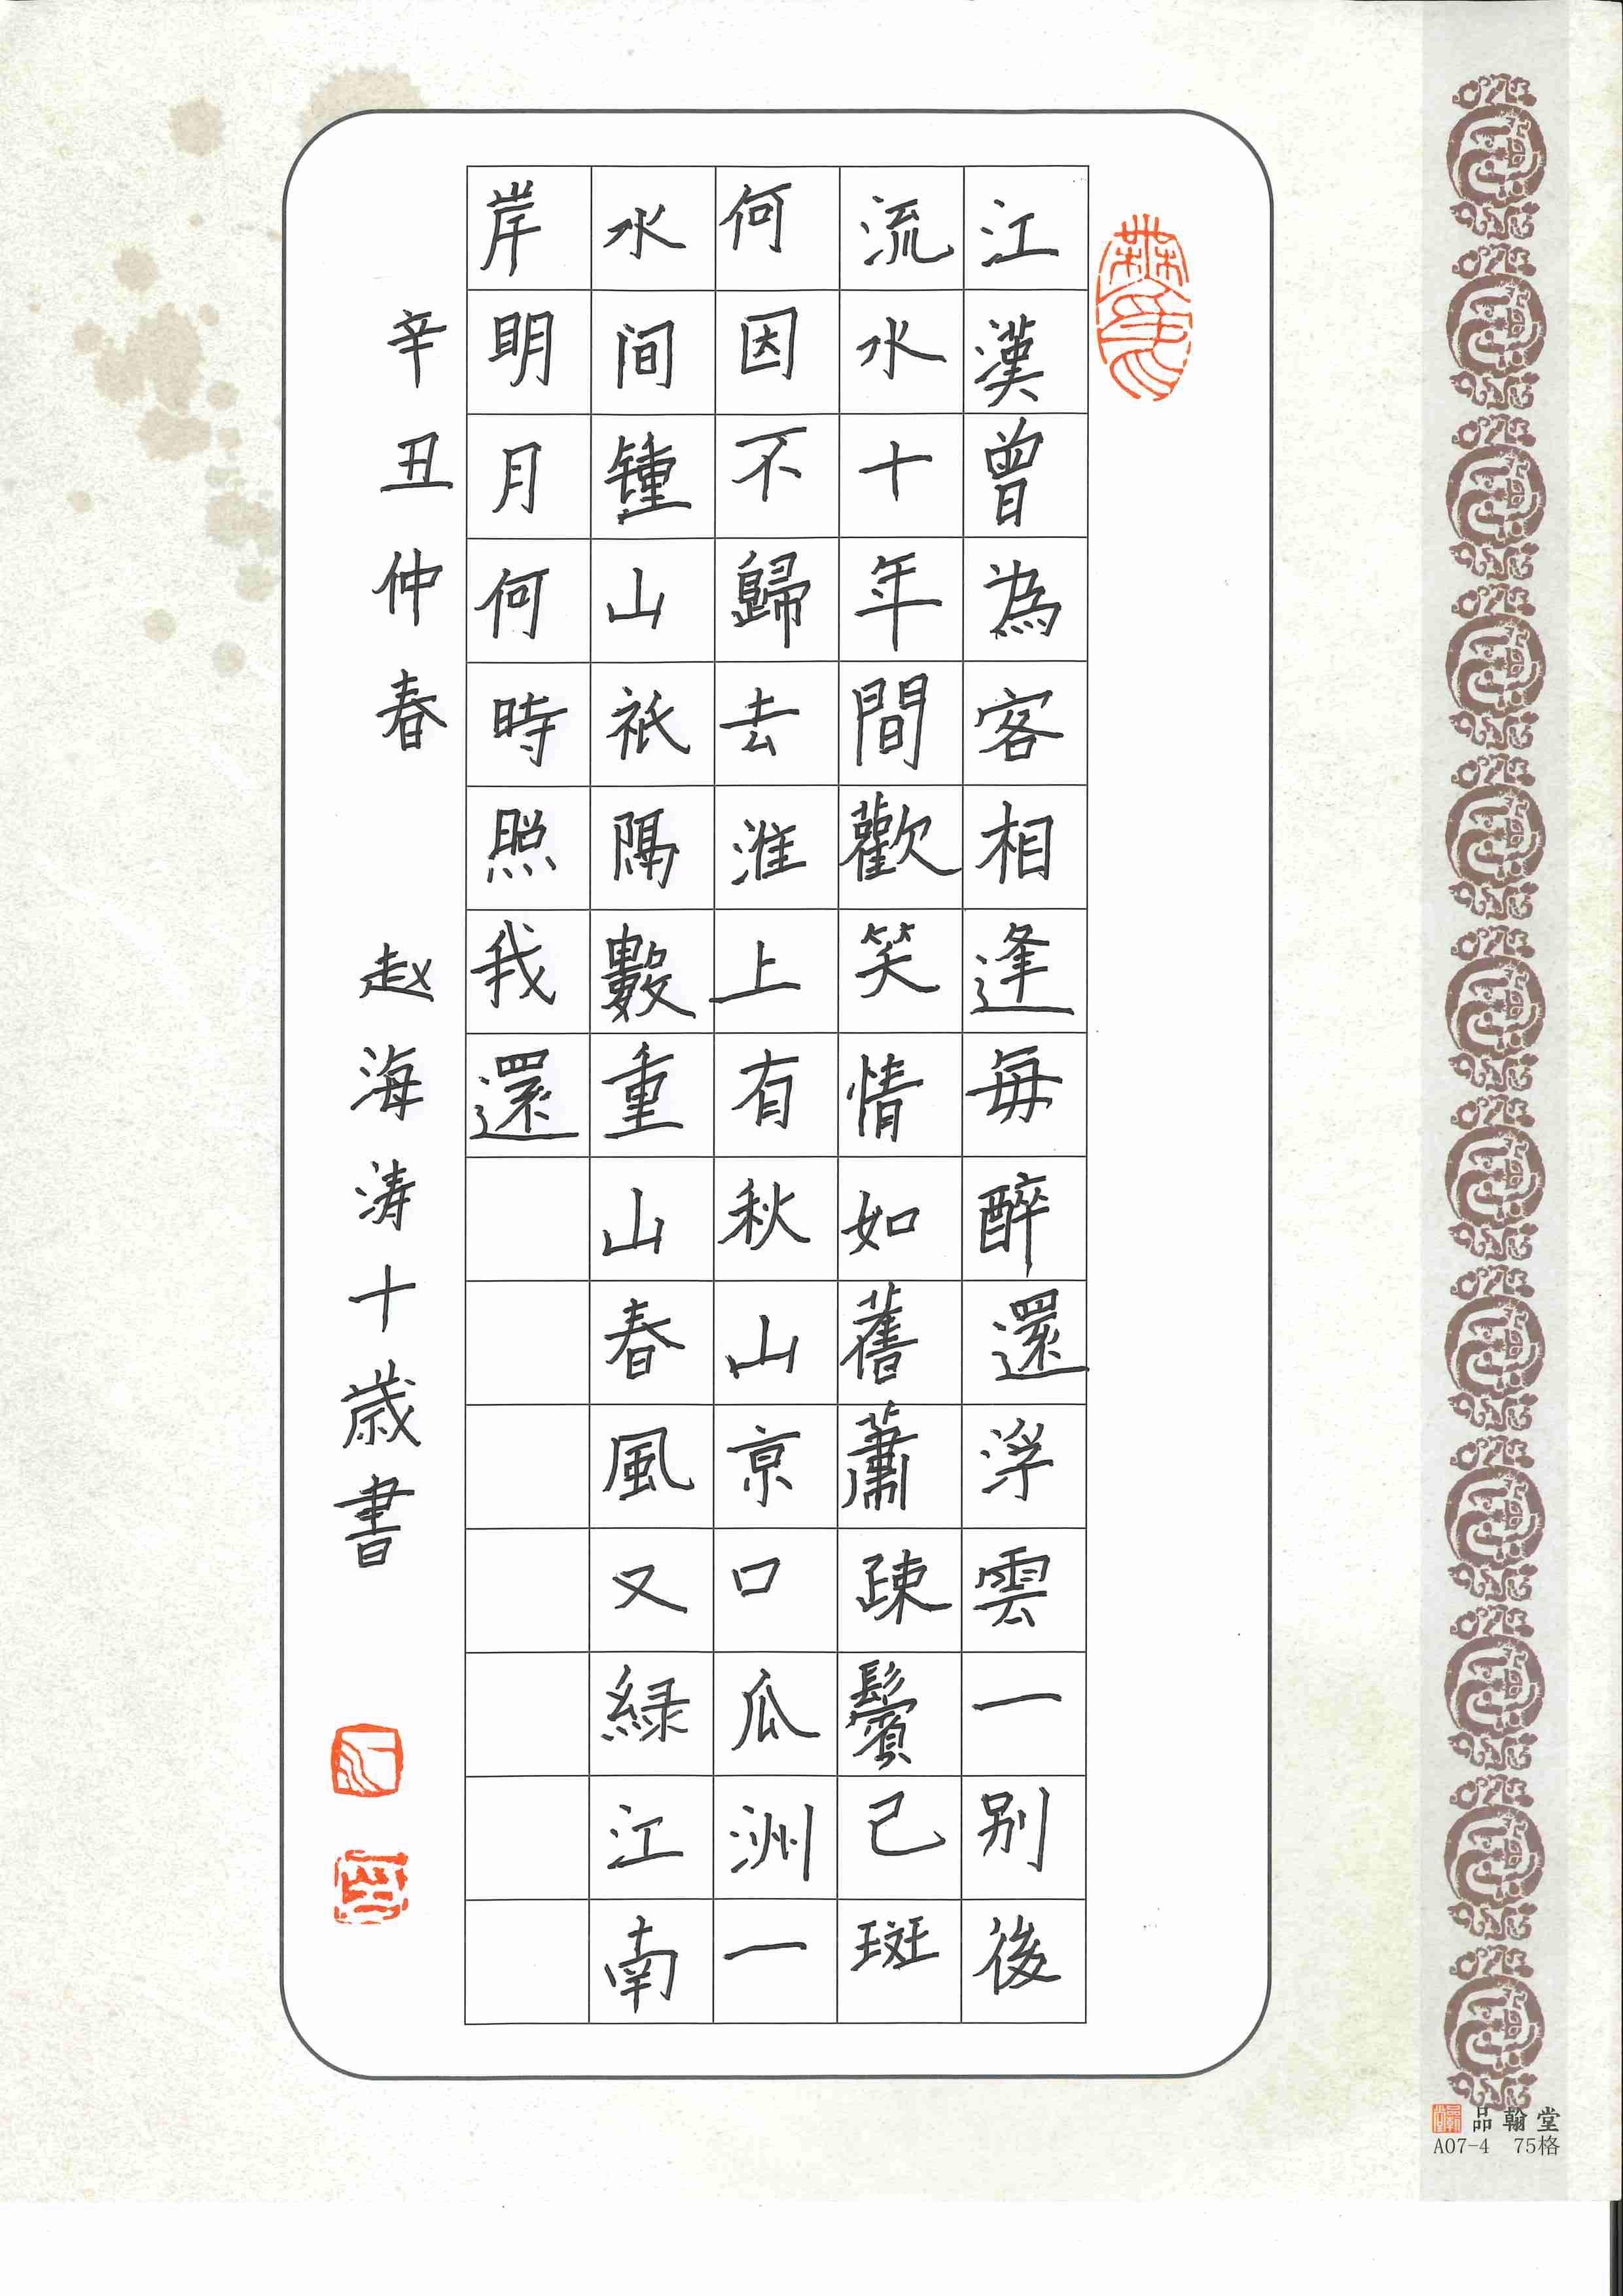 江漢曾為客相逢每醉還浮雲一别後
流水十年間歡笑情如舊蕭疎鬢己斑
何因不歸去淮上有秋山京口瓜洲一
水间鐘山祇隔數重山春風又緑江南
岸明月何時照我還
辛丑仲春 赵海涛十歳書
品翰堂
A07-4 75格